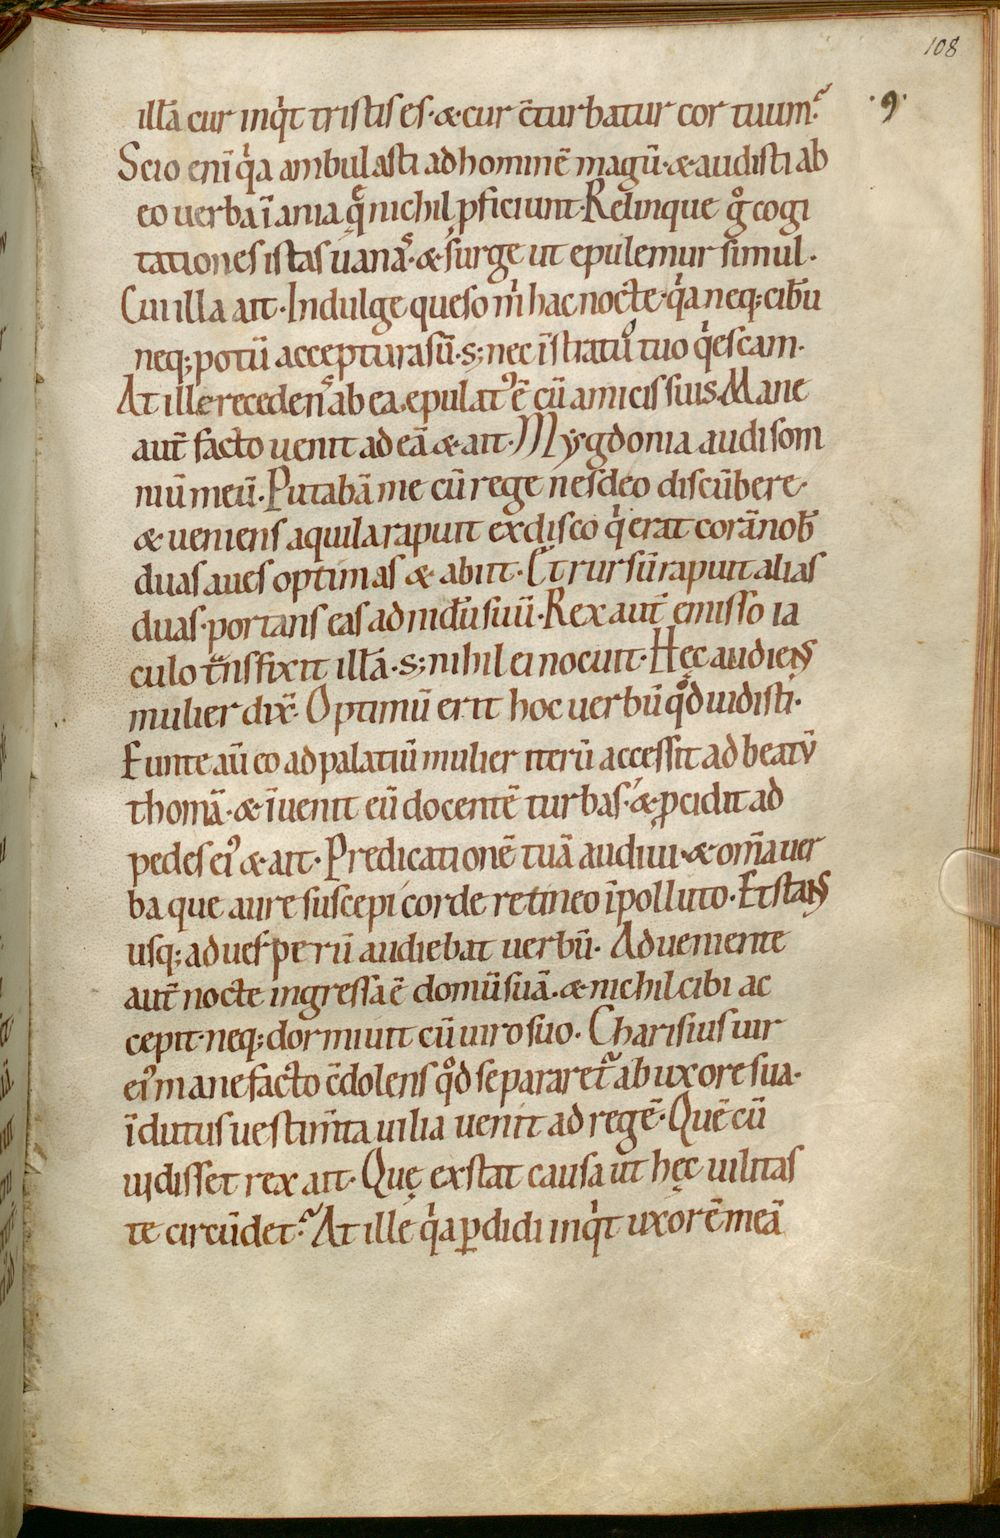 108
·9·
illā cur inqͥt tristis es · & cur c̄turbatur cor tuum?
Scio eni̅ qͥa ambulasti ad hominē magū · & audisti ab
eo uerba ī ania quę nichil ꝓficiunt · Relinque gͦ cogi
tationes istas uanas · & surge ut epulemur simul ·
Cui illa ait · Indulge queso mͥ hac nocte · qͥa neq; cibū
neq; potū acceptura sū · s; nec ī stratu tuo qͥescam ·
At ille recedens ab ea · epulatꝰ ē cū amicis suis · Mane
aut̄ facto uenit ad eā & ait · Mygdonia audi som
niū meū · Putabā me cū rege nesdeo discūbere ·
& ueniens aquila rapuit ex disco qͥ erat corā nob̄
duas aues optimas & abiit · Et rursū rapuit alias
duas · portans eas ad nidū suū · Rex aut̄ emisso ia
culo t̄nsfixit illā · s; nihil ei nocuit · Hęc audiens
mulier dix̄ · Optimū erit hoc uerbū qͦd uidisti ·
Eunte aū eo ad palatiū mulier iterū accessit ad beatū
thomā · & īuenit eū docentē turbas · & ꝓcidit ad
pedes eiꝰ & ait · Predicationē tuā audiui · & om̄a uer
ba que aure suscepi corde retineo īpolluto · Et stans
usq; ad uesperū audiebat uerbū · Adueniente
aut̄ nocte ingressa ē domū suā · & nichil cibi ac
cepit · neq; dormiuit cū uiro suo · Charisius uir
eiꝰ mane facto c̄dolens qͦd separaret̄ ab uxore sua ·
īdutus uestim̄ta uilia uenit ad regē · Quē cū
uidisset rex ait · Quę exstat causa ut hęc uilitas
te circūdet? At ille qͥa ꝑdidi inqͥt uxorē meā